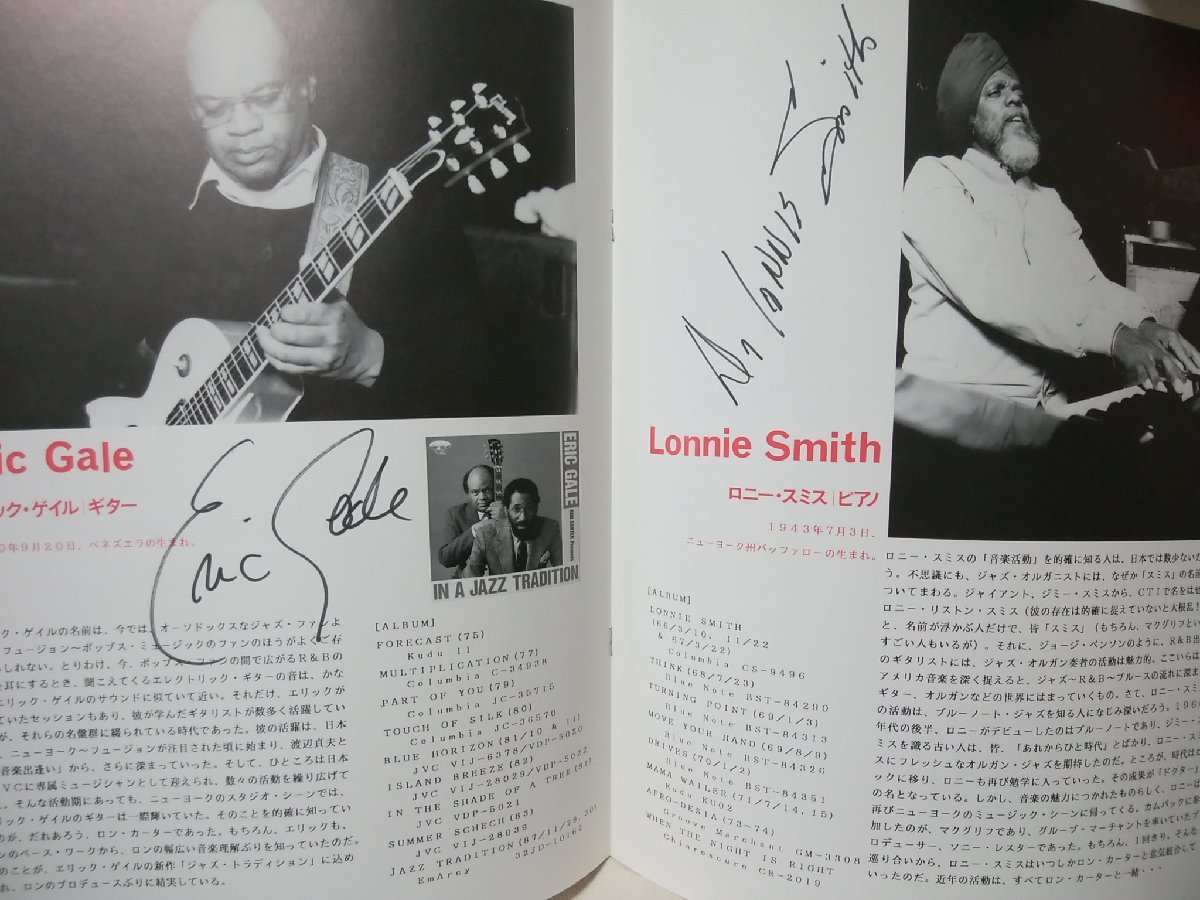 ic Gale
ック・ゲイル｜ギター
0年9月20日、ベネズエラの生まれ。
Eric Gale
ERIC GALE
RON CARTER Presents
IN A JAZZ TRADITION
ック・ゲイルの名前は、今では、オーソドックスなジャズ・ファンよ
フュージョン〜ポップス・ミュージックのファンのほうがよくご存
しれない。とりわけ、今、ポップス・ファンの間で広がるR&Bの
を耳にするとき、聞こえてくるエレクトリック・ギターの音は、かな
エリック・ゲイルのサウンドに似ていて近い。それだけ、エリックが
ていたセッションもあり、彼が学んだギタリストが数多く活躍してい
が、それらの名盤群に綴られている時代であった。彼の活躍は、日本
、ニューヨーク〜フュージョンが注目された頃に始まり、渡辺貞夫と
音楽出逢い」から、さらに深まっていった。そして、ひところは日本
VCに専属ミュージシャンとして迎えられ、数々の活動を繰り広げて
。そんな活動期にあっても、ニューヨークのスタジオ・シーンでは、
リック・ゲイルのギターは一際輝いていた。そのことを的確に知ってい
のが、だれあろう、ロン・カーターであった。もちろん、エリックも、
ンのベース・ワークから、ロンの幅広い音楽理解ぶりを知っていたのだ。
のことが、エリック・ゲイルの新作「ジャズ・トラディション」に込め
れ、ロンのプロデュースぶりに結実している。
[ALBUM]
FORECAST (75)
Kudu 11
MULTIPLICATION (77)
Columbia C-34938
PART OF YOU (79)
Columbia JC-35715
TOUCH OF SILK (80)
Columbia JC-36570
BLUE HORIZON (81/10 & 11)
JVC VIJ-6378/VDP-5020
ISLAND BREEZE (82)
JVC VIJ-28029/VDP-5022
IN THE SHADE OF A TREE (81)
JVC VDP-5021
SUMMER SCHECH (83)
JVC VIJ-28039
JAZZ TRADITION (87/11/29,30)
EmArcy 32JD-10162
Dr Lonnie Smith
Lonnie Smith
ロニー・スミス｜ピアノ
1943年7月3日、
ニューヨーク州バッファローの生まれ。
[ALBUM]
LONNIE SMITH
(66/3/10, 11/22
& 67/3/22)
Columbia CS-9496
THINK (68/7/23)
Blue Note BST-84290
TURNING POINT (69/1/3)
Blue Note BST-84313
MOVE YOUR HAND (69/8/9)
Blue Note BST-84326
DRIVES (70/1/2)
Blue Note BST-84351
MAMA WAILER (71/7/14, 15)
Kudu KU02
AFRO-DESIA (73~74)
Groove Merchant GM-3308
WHEN THE NIGHT IS RIGHT
Chiaroscuro CR-2019
ロニー・スミスの「音楽活動」を的確に知る人は、日本では数少ないだ
う。不思議にも、ジャズ・オルガニストには、なぜか「スミス」の名前
ついてまわる。ジャイアント、ジミー・スミスから、CTIで名をはせ
ロニー・リストン・スミス（彼の存在は的確に捉えていないと大根乱！
と、名前が浮かぶ人だけで、皆「スミス」（もちろん、マクグリフとい
すごい人もいるが）。それに、ジョージ・ベンソンのように、R&B出
のギタリストには、ジャズ・オルガン奏者の活動は魅力的。ここいらは
アメリカ音楽を深く捉えると、ジャズ〜R&B〜ブルースの流れに深ま
ギター、オルガンなどの世界にはまっていくもの。さて、ロニー・スミ
の活動は、ブルーノート・ジャズを知る人になじみ深いだろう。196
年代の後半、ロニーがデビューしたのはブルーノートであり、ジミー・
ミスを識る古い人は、皆、「あれからひと時代」とばかり、ロニー・ス
スにフレッシュなオルガン・ジャズを期待したのだ。ところが、時代はロ
ックに移り、ロニーも再び勉学に入っていった。その成果が「ドクター」
の名となっている。しかし、音楽の魅力につかれたものらしく、ロニーは
再びニューヨークのミュージック・シーンに帰ってくる。カムバックに参
加したのが、マクグリフであり、グルーブ・マーチャントを率いていたプ
ロデューサー、ソニー・レスターであった。もちろん、1回きり。そんな
巡り合いから、ロニー・スミスはいつしかロン・カーターと意気統合して
いったのだ。近年の活動は、すべてロン・カーターと一緒・・・